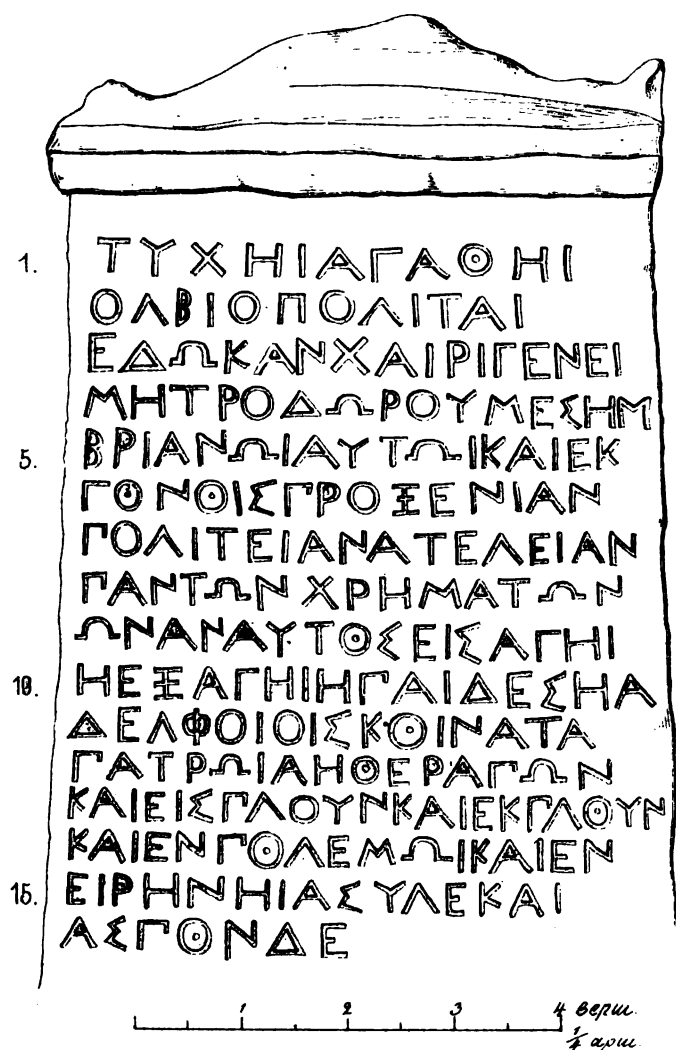 1. ΤΥΧΗΙΑΓΑΘΗΙ
ΟΛΒΙΟΠΟΛΙΤΑΙ
ΕΔΩΚΑΝΧΑΙΡΙΓΕΝΕΙ
ΜΗΤΡΟΔΩΡΟΥΜΕΣΗΜ
5. ΒΡΙΑΝΩΙΑΥΤΩΙΚΑΙΕΚ
ΓΟΝΘΙΣΓΡΟΞΕΝΙΑΝ
ΓΟΛΙΤΕΙΑΝΑΤΕΛΕΙΑΝ
ΓΑΝΤΩΝΧΡΗΜΑΤΩΝ
ΩΝΑΝΑΥΤΟΣΕΙΣΑΓΗΙ
10. ΗΕΞΑΓΗΙΗΓΑΙΔΕΣΗΑ
ΔΕΛΦΟΙΟΙΣΚΘΙΝΑΤΑ
ΓΑΤΡΩΙΑΗΘΕΡΑΓΩΝ
ΚΑΙΕΙΣΓΛΟΥΝΚΑΙΕΚΓΛΘΥΝ
ΚΑΙΕΝΓΘΛΕΜΩΙΚΑΙΕΝ
15. ΕΙΡΗΝΗΙΑΣΥΛΕΚΑΙ
ΑΣΓΘΝΔΕ
1 2 3 4 верш.
1/4 арш.